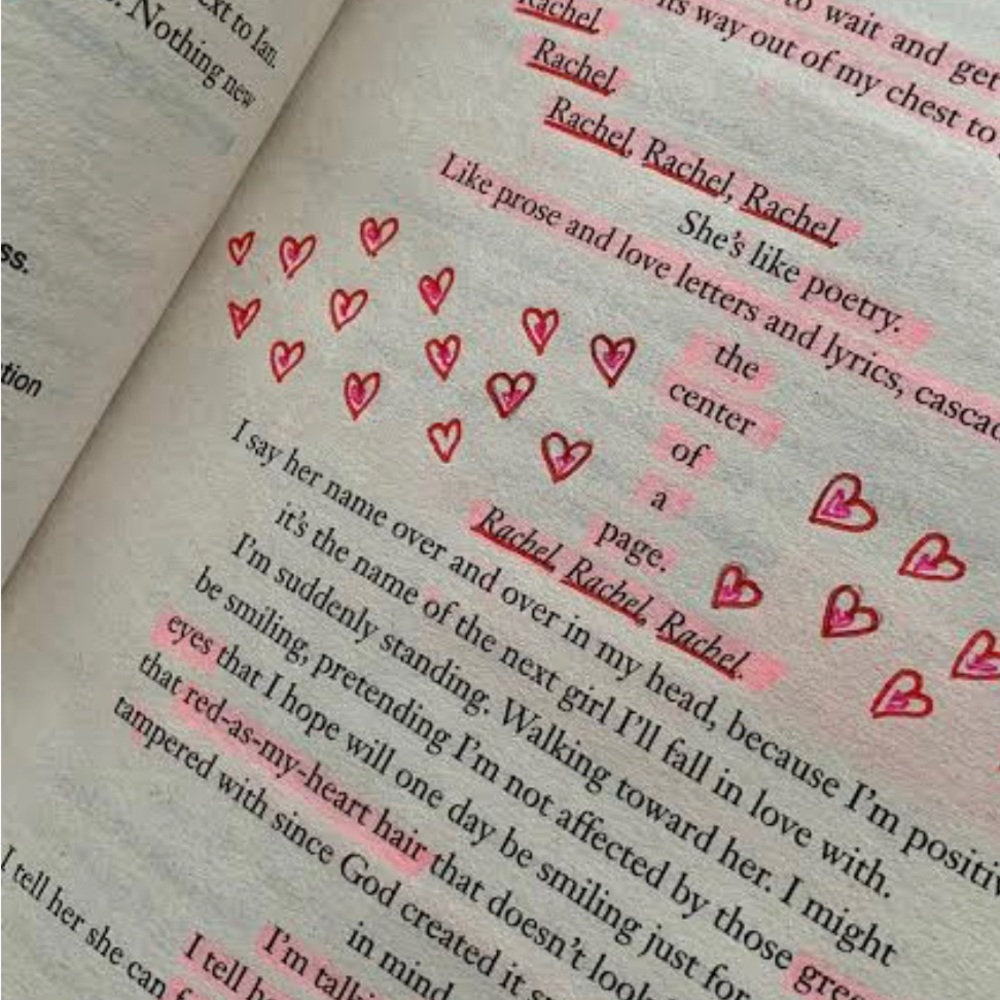 ext to Ian.
Nothing new
ss.
tion
to wait and get
its way out of my chest to
Rachel.
Rachel.
Rachel, Rachel, Rachel.
She's like poetry.
Like prose and love letters and lyrics, cascad
the
center
of
a
page.
Rachel, Rachel, Rachel.
I say her name over and over in my head, because I'm positiv
it's the name of the next girl I'll fall in love with.
I'm suddenly standing. Walking toward her. I might
be smiling, pretending I'm not affected by those gree
eyes that I hope will one day be smiling just for
that red-as-my-heart hair that doesn't look
tampered with since God created it
in mind
I'm talki
I tell he
I tell her she can